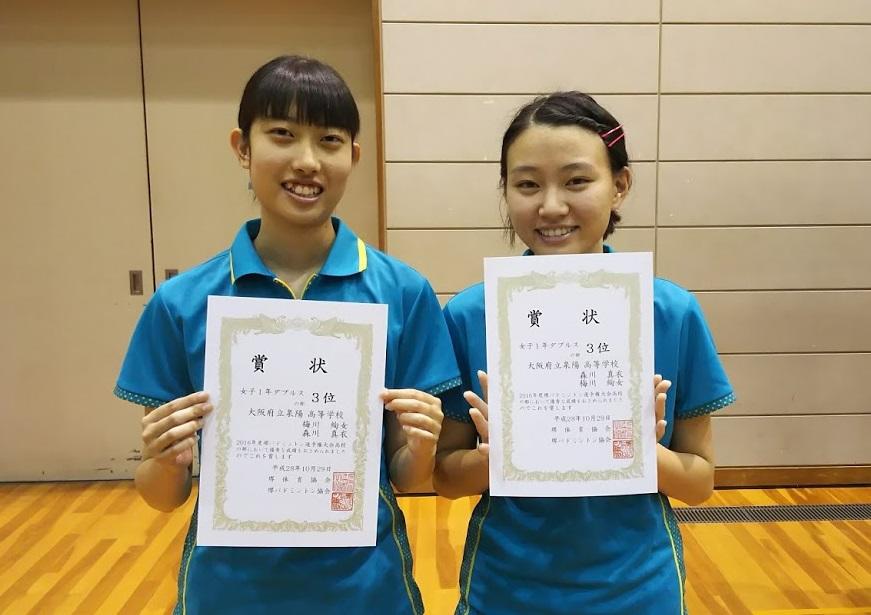 賞 状
女子1年ダブルス 3位
の部
大阪府立泉陽 高等学校
梅川 絢女
森川 真衣
2016年度堺バドミントン選手権大会高校
の部において優秀な成績をおさめられました
のでこれを賞します
平成28年10月29日
堺 体 育 協 会
堺バドミントン協会
賞 状
女子1年ダブルス 3位
の部
大阪府立泉陽 高等学校
森川 真衣
梅川 絢女
2016年度堺バドミントン選手権大会高校
の部において優秀な成績をおさめられました
のでこれを賞します
平成28年10月29日
堺 体 育 協 会
堺バドミントン協会